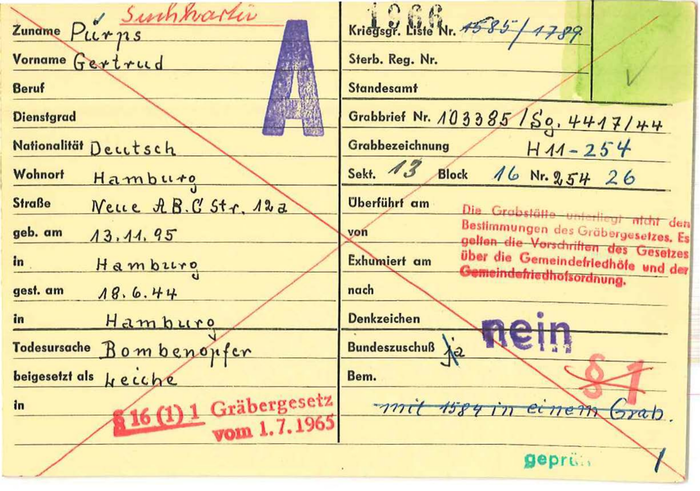 Suchkartei
1966
Zuname Pürps
Vorname Gertrud
Beruf
Dienstgrad
Nationalität Deutsch
Wohnort Hamburg
Straße Neue A.B.C Str. 12a
geb. am 13.11.95
in Hamburg
gest. am 18.6.44
in Hamburg
Todesursache Bombenopfer
beigesetzt als Leiche
in
§ 16 (1) 1 Gräbergesetz
vom 1.7.1965
A
Kriegsgr. Liste Nr. 1585/1789
Sterb. Reg. Nr.
Standesamt
Grabbrief Nr. 103385/Sg. 4417/44
Grabbezeichnung H11-254
Sekt. 13 Block 16 Nr. 254 26
Überführt am
von
Exhumiert am
nach
Die Grabstätte unterliegt nicht den
Bestimmungen des Gräbergesetzes. Es
gelten die Vorschriften des Gesetzes
über die Gemeindefriedhöfe und der
Gemeindefriedhofsordnung.
Denkzeichen
nein
Bundeszuschuß ja
Bem.
§ 1
mit 1584 in einem Grab.
geprüft
1